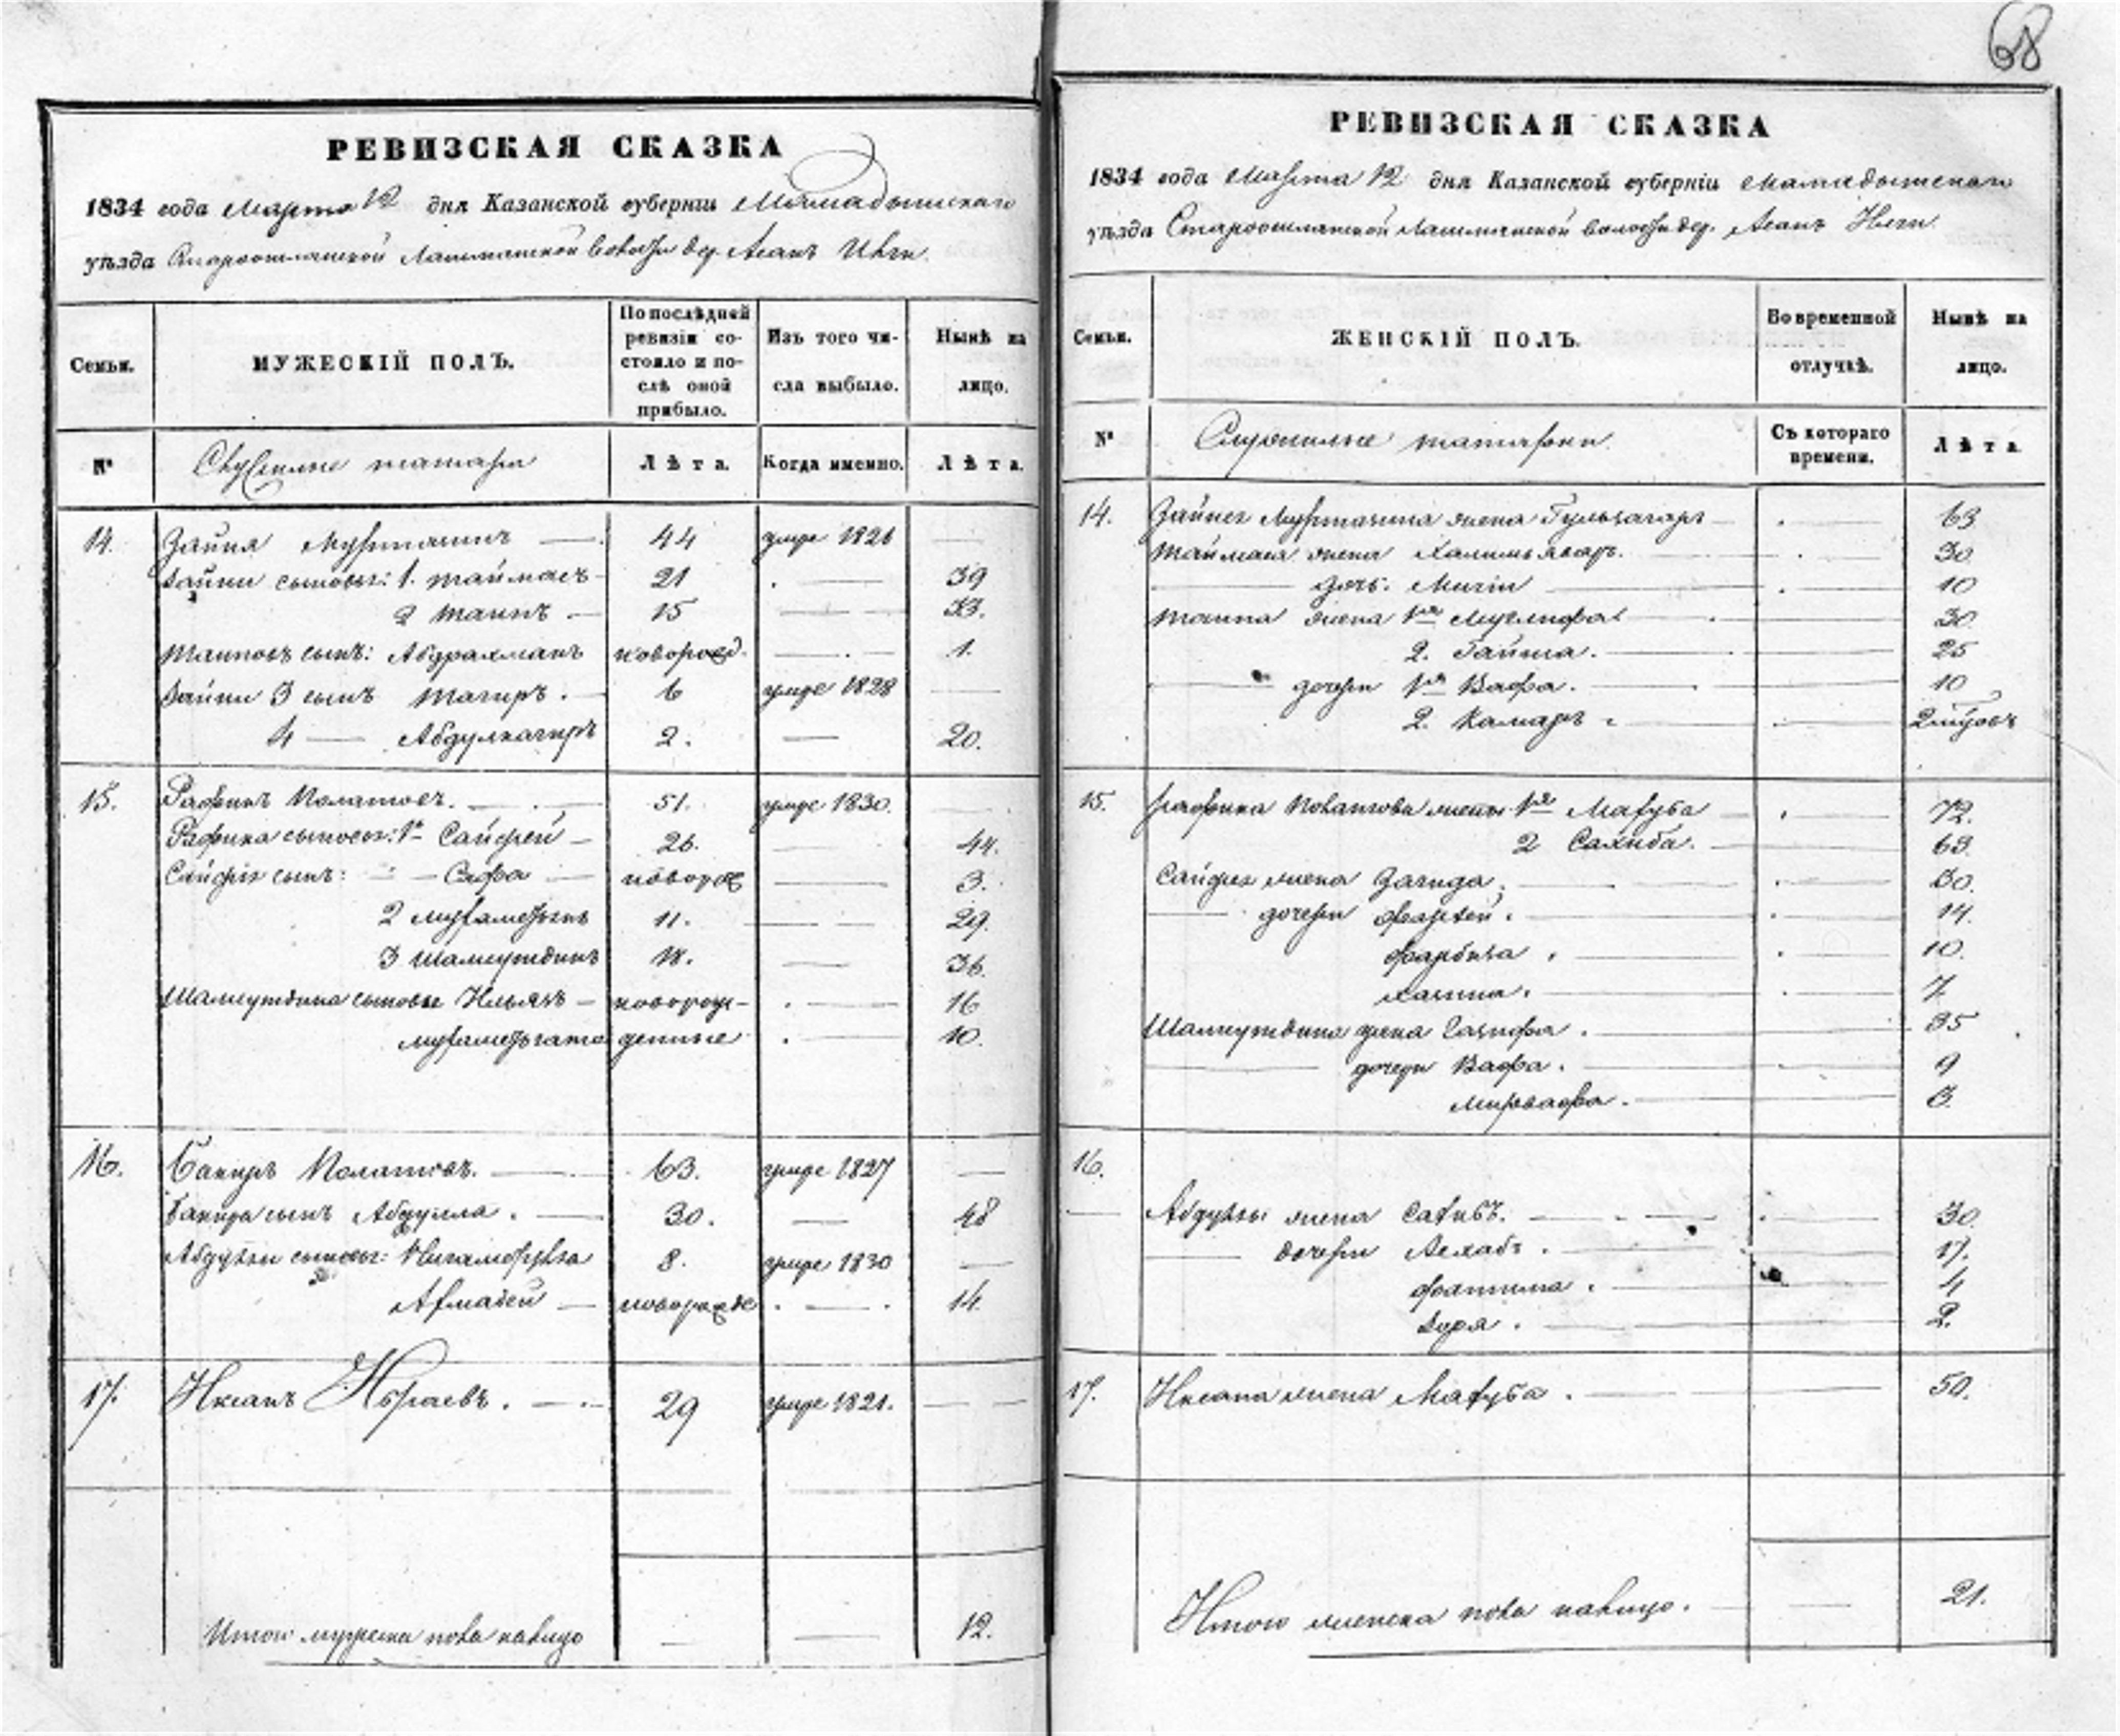 68
РЕВИЗСКАЯ СКАЗКА
1834 года Марта 12 дня Казанской губерніи Мамадышскаго
уѣзда Староошланской Лашманской волости дер. Асанъ Илги.
Семьи.
МУЖЕСКІЙ ПОЛЪ.
По послѣдней ревизіи состояло и послѣ оной прибыло.
Изъ того числа выбыло.
Нынѣ на лицо.
№
Служилые татары
Лѣта.
Когда именно.
Лѣта.
14. Зайня Муртазинъ — 44 умре 1821 —
Зайни сыновья: 1. Таймасъ — 21 . — 39
2 Таипъ — 15 — 33.
Таиповъ сынъ: Абдрахманъ новорожд. — . — 1.
Зайни 3 сынъ Тагиръ. — 6 умре 1828 —
4 — Абдулкагиръ 2. — 20.
15. Рафикъ Полатовъ. — 51. умре 1830. —
Рафика сыновья: 1й Сайфей — 26. — 44.
Сайфея сынъ: — Сафа — новорож — 3.
2 Мухаметзянъ 11. — 29.
3 Шамсутдинъ 18. — 36.
Шамсутдина сыновья Ильязъ — новорож- . — 16
денные . — 10.
16. Бакиръ Полатовъ. — 63. умре 1827 —
Бакира сынъ Абдулла. — 30. — 48
Абдуллы сыновья: 8. умре 1830 —
Ахмадей — новорожде . — . 14.
17. Иксанъ . — 29 умре 1821. —
Итого мужеска пола налицо — — 12.
РЕВИЗСКАЯ СКАЗКА
1834 года Марта 12 дня Казанской губерніи Мамадышскаго
уѣзда Староошланской Лашманской волости дер. Асанъ Илги.
Семьи.
ЖЕНСКІЙ ПОЛЪ.
Во временной отлучкѣ.
Нынѣ на лицо.
№
Служилые татарки.
Съ котораго времени.
Лѣта.
14. Муртазина жена — . — 63
Таймаса жена — . — 30
— дочь. — . — 10
Таипа жена 1я — . — 30.
2. Гайша. — 25
— дочери 1я Вафа. — . — 10
2. Камаръ . — 2 мѣсѣ
15. Рафика Полатова жены 1я Махуба — . — 72.
2 Сахиба. — 63.
Сайфея жена Загида. — . — 30.
— дочери . — . — 14.
Фарбиза . — . — 10.
Хасина. — . — 7.
Шамсутдина жена . — 35
— дочери Вафа. — 9
Мирвафа. — 3.
16.
— Абдуллы жена Сахибъ. — . — 30.
— дочери . — 17.
Фатима . — 4
Зюря . — 2.
17. Иксана жена Махуба . — 50.
Итого женска пола налицо. — 21.